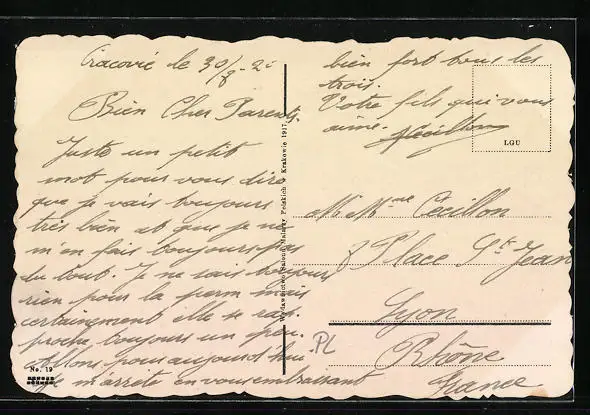 Cracovie le 30/8-2
Bien Cher Parents,
Juste un petit
mot pour vous dire
que je vais toujours
très bien et que je ne
m'en fais toujours pas
du tout. Je ne sais toujours
rien pour la perm mais
certainement elle se rap-
proche toujours un peu.
Allons pour aujourd'hui
je m'arrête en vous embrassant
bien fort tous les
trois.
Votre fils qui vous
aime. Cécillon
LGU
Wydawnictwo Salonu Malarzy Polskich w Krakowie 1917.
M. Mme Cécillon
8 Place St Jean
Lyon
Rhône
France
PL
No. 19